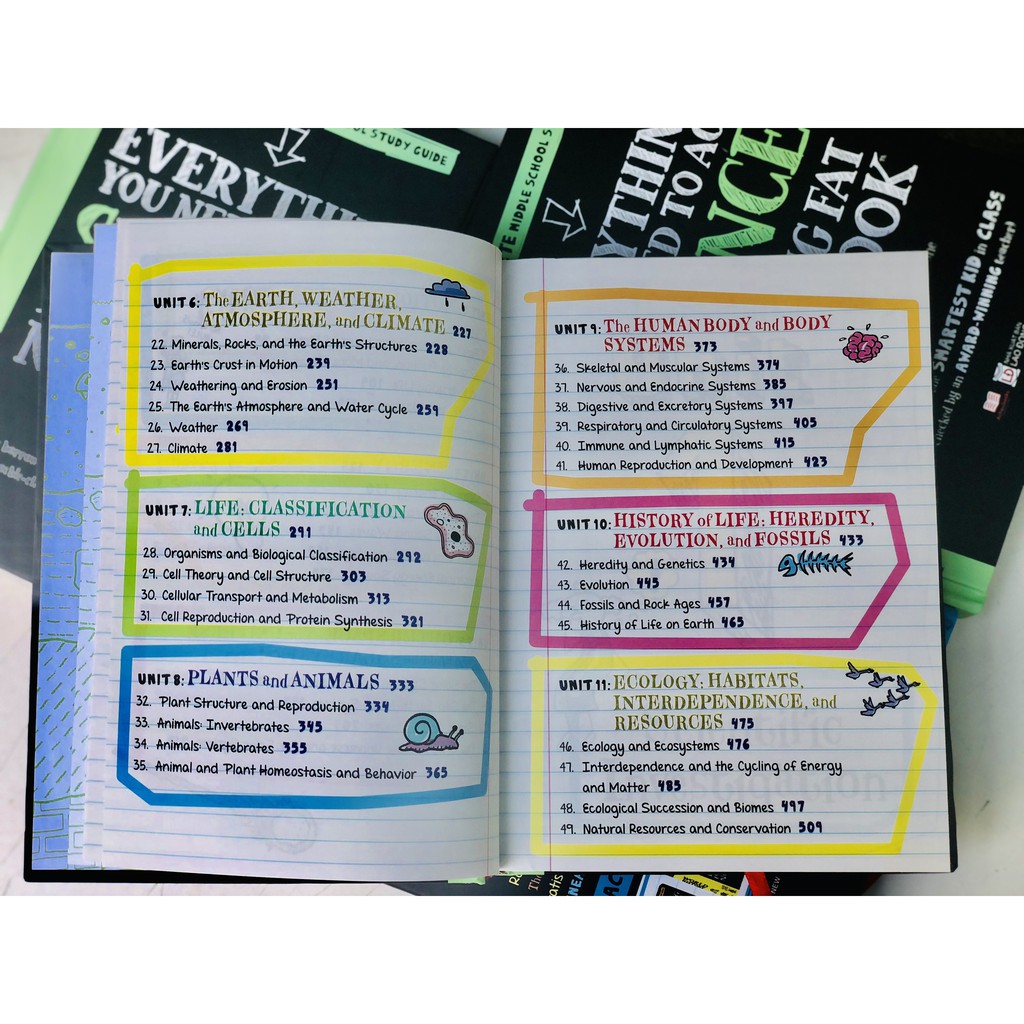 OL STUDY GUIDE
EVERYTHI
YOU NEE
TE MIDDLE SCHOOL S
YTHIN
D TO AC
NCE
G FAT
OOK
SMARTEST KID in CLASS
checked by an AWARD-WINNING teacher!
UNIT 6: The EARTH, WEATHER,
ATMOSPHERE, and CLIMATE 227
22. Minerals, Rocks, and the Earth's Structures 228
23. Earth's Crust in Motion 239
24. Weathering and Erosion 251
25. The Earth's Atmosphere and Water Cycle 259
26. Weather 269
27. Climate 281
UNIT 7: LIFE: CLASSIFICATION
and CELLS 291
28. Organisms and Biological Classification 292
29. Cell Theory and Cell Structure 303
30. Cellular Transport and Metabolism 313
31. Cell Reproduction and Protein Synthesis 321
UNIT 8: PLANTS and ANIMALS 333
32. Plant Structure and Reproduction 334
33. Animals: Invertebrates 345
34. Animals: Vertebrates 355
35. Animal and Plant Homeostasis and Behavior 365
UNIT 9: The HUMAN BODY and BODY
SYSTEMS 373
36. Skeletal and Muscular Systems 374
37. Nervous and Endocrine Systems 385
38. Digestive and Excretory Systems 397
39. Respiratory and Circulatory Systems 405
40. Immune and Lymphatic Systems 415
41. Human Reproduction and Development 423
UNIT 10: HISTORY of LIFE: HEREDITY,
EVOLUTION, and FOSSILS 433
42. Heredity and Genetics 434
43. Evolution 445
44. Fossils and Rock Ages 457
45. History of Life on Earth 465
UNIT 11: ECOLOGY: HABITATS,
INTERDEPENDENCE, and
RESOURCES 475
46. Ecology and Ecosystems 476
47. Interdependence and the Cycling of Energy
and Matter 485
48. Ecological Succession and Biomes 497
49. Natural Resources and Conservation 509